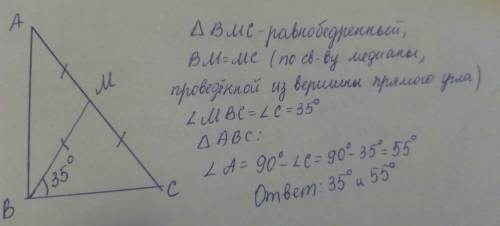 A
M
35°
B
C
△ BMC - равнобедренный,
BM = MC (по св-ву медианы,
проведённой из вершины прямого угла)
∠MBC = ∠C = 35°
△ ABC:
∠A = 90° - ∠C = 90° - 35° = 55°
Ответ: 35° и 55°